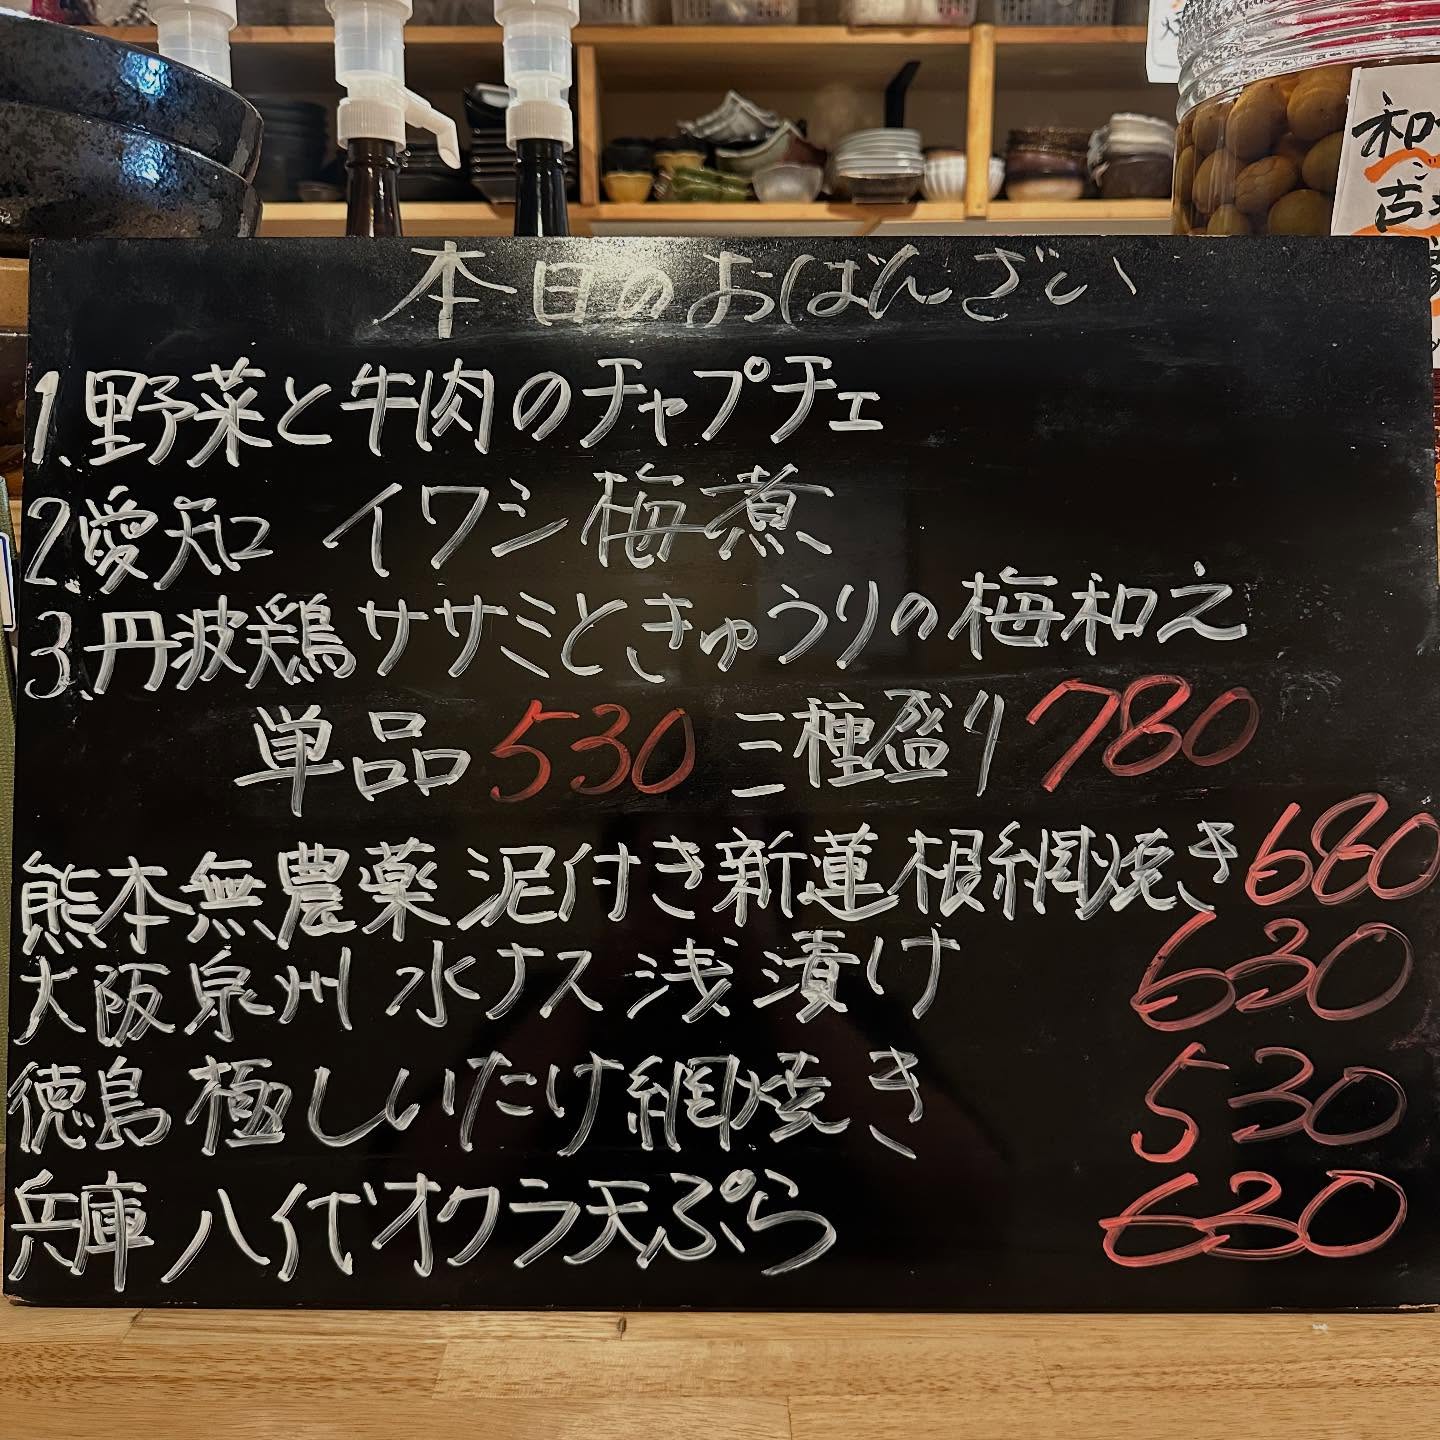 本日のおばんざい
1.野菜と牛肉のチャプチェ
2.愛知 イワシ梅煮
3.丹波鶏ササミときゅうりの梅和え
単品530 三種盛り780
熊本無農薬泥付き新蓮根網焼き680
大阪泉州 水ナス浅漬け 630
徳島極しいたけ網焼き 530
兵庫 八代オクラ天ぷら 630
和
古